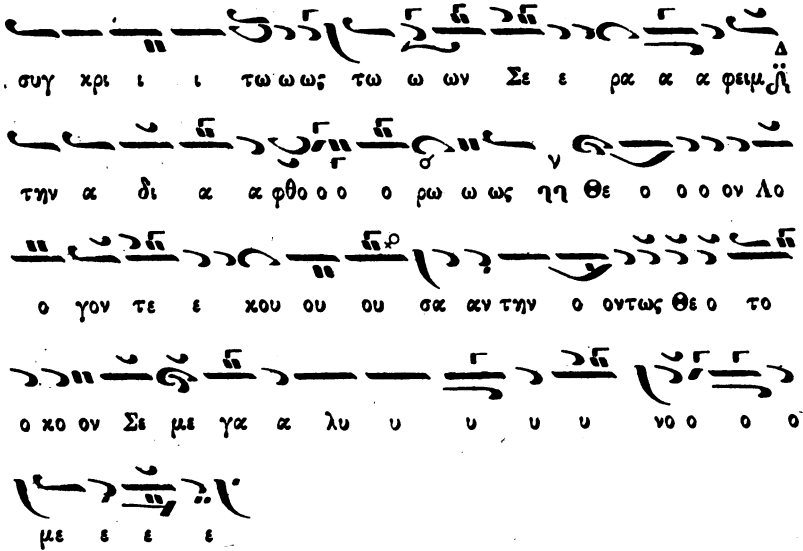 συγ κρι ι ι τω ω ως τω ω ων Σε ε ρα α α φειμ Δ
την α δι α α φθο ο ο ο ρω ω ως ηη Θε ο ο ο ον Λο
ο γον τε ε κου ου ου σα αν την ο οντως Θε ο το
ο κο ον Σε με γα α λυ υ υ υ υ νο ο ο ο
με ε ε ε